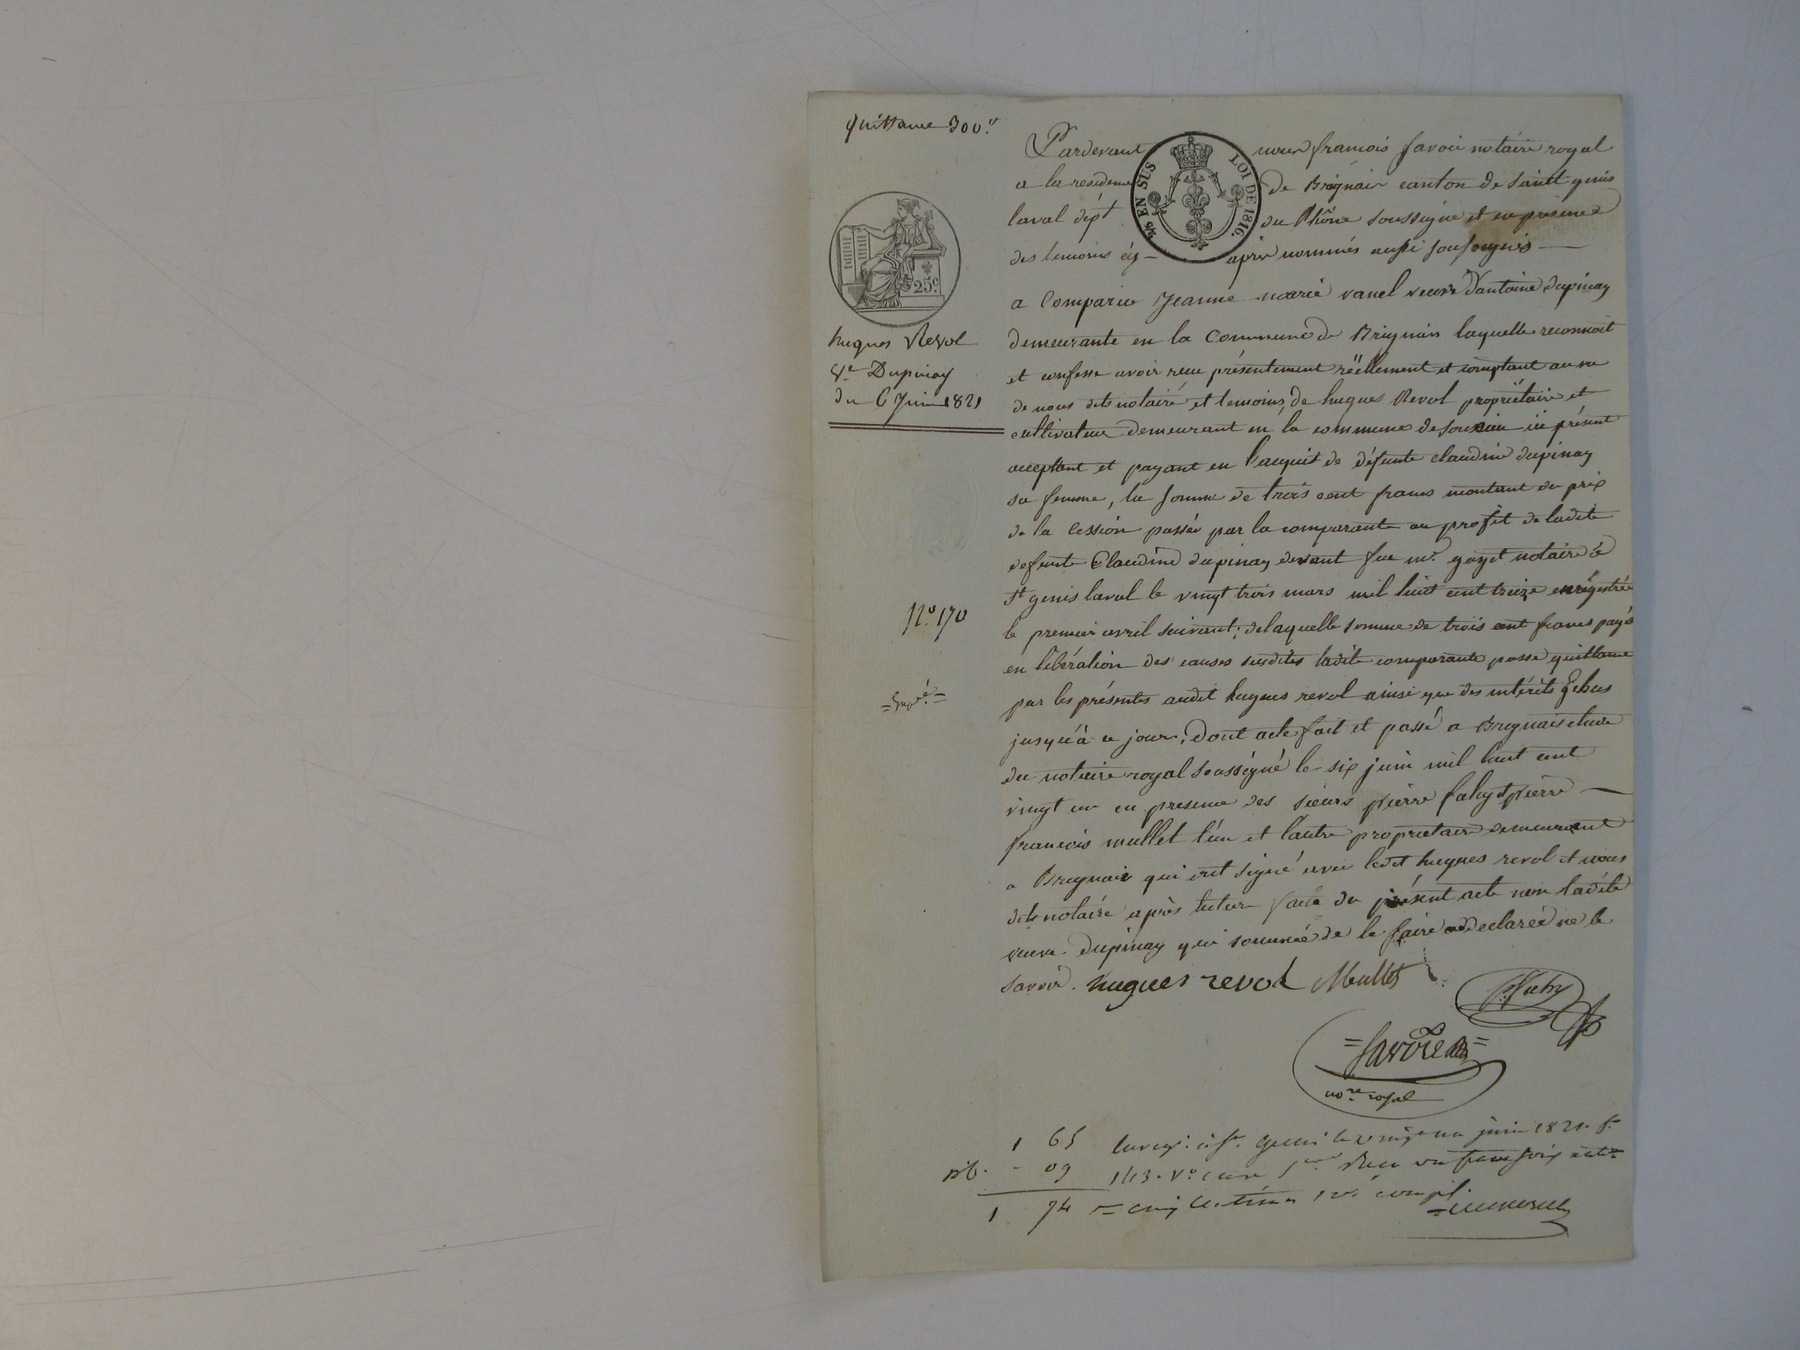 quittance 300.ᶠ
Pardevant nous francois savoie notaire royal
a la residence de Brignais canton de Saint genis
laval dép.t du Rhône soussigné et en presence
des temoins cy- après nommés aussi soussignés
⅖ EN SUS LOI DE 1816.
25ᶜ
a Comparu Jeanne marie vanel veuve d'antoine dupinay
hugues Revol
demeurante en la Commune de Brignais laquelle reconnoit
Vᵉ Dupinay
et confesse avoir recu présentement réellement et comptant au vu
du 6 Juin 1821
de nous dits notaire et temoins, de hugues Revol propriétaire et
cultivateur demeurant en la commune de ici présent
acceptant et payant en l'acquit de défunte claudine dupinay
sa femme, la somme de trois cent francs montant du prix
de la cession passée par la comparante au profit de ladite
defunte Claudine dupinay devant feu mᵉ goyet notaire à
Sᵗ genis laval le vingt trois mars mil huit cent treize enregistrée
Nᵒ. 170
le premier avril suivant; de laquelle somme de trois cent francs payée
en libération des causes susdites ladite comparante passe quittance
par les présentes audit hugues revol ainsi que des intérêts échus
jusqu'à ce jour; Dont acte fait et passé a Brignais etude
du notaire royal soussigné le six juin mil huit cent
vingt un en presence des sieurs pierre fahy et pierre
francois mullet l'un et l'autre proprietaire demeurant
a Brignais qui ont signé avec ledit hugues revol et nous
dits notaire après lecture faite du présent acte non ladite
veuve Dupinay qui sommée de le faire a declaré ne le
savoir.
hugues revol Mullet
P. fahy
= Savoie =
noʳᵉ royal
1 65 Enreg. à Sᵗ Genis le vingt un juin 1821 fᵒ
09 143 Vᵒ case Reçu un franc soixante
1 74 = cinq centimes